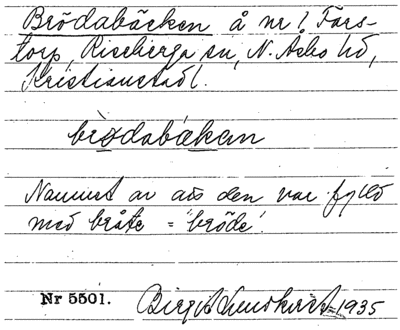 Brödabäcken å nr 1 Fars-
torp, Riseberga sn, N. Åsbo hd,
Kristianstad l.
brodabäkan
Namnet av att den var fylld
med bråte = 'bröde'.
Nr 5501. Birgit 1935